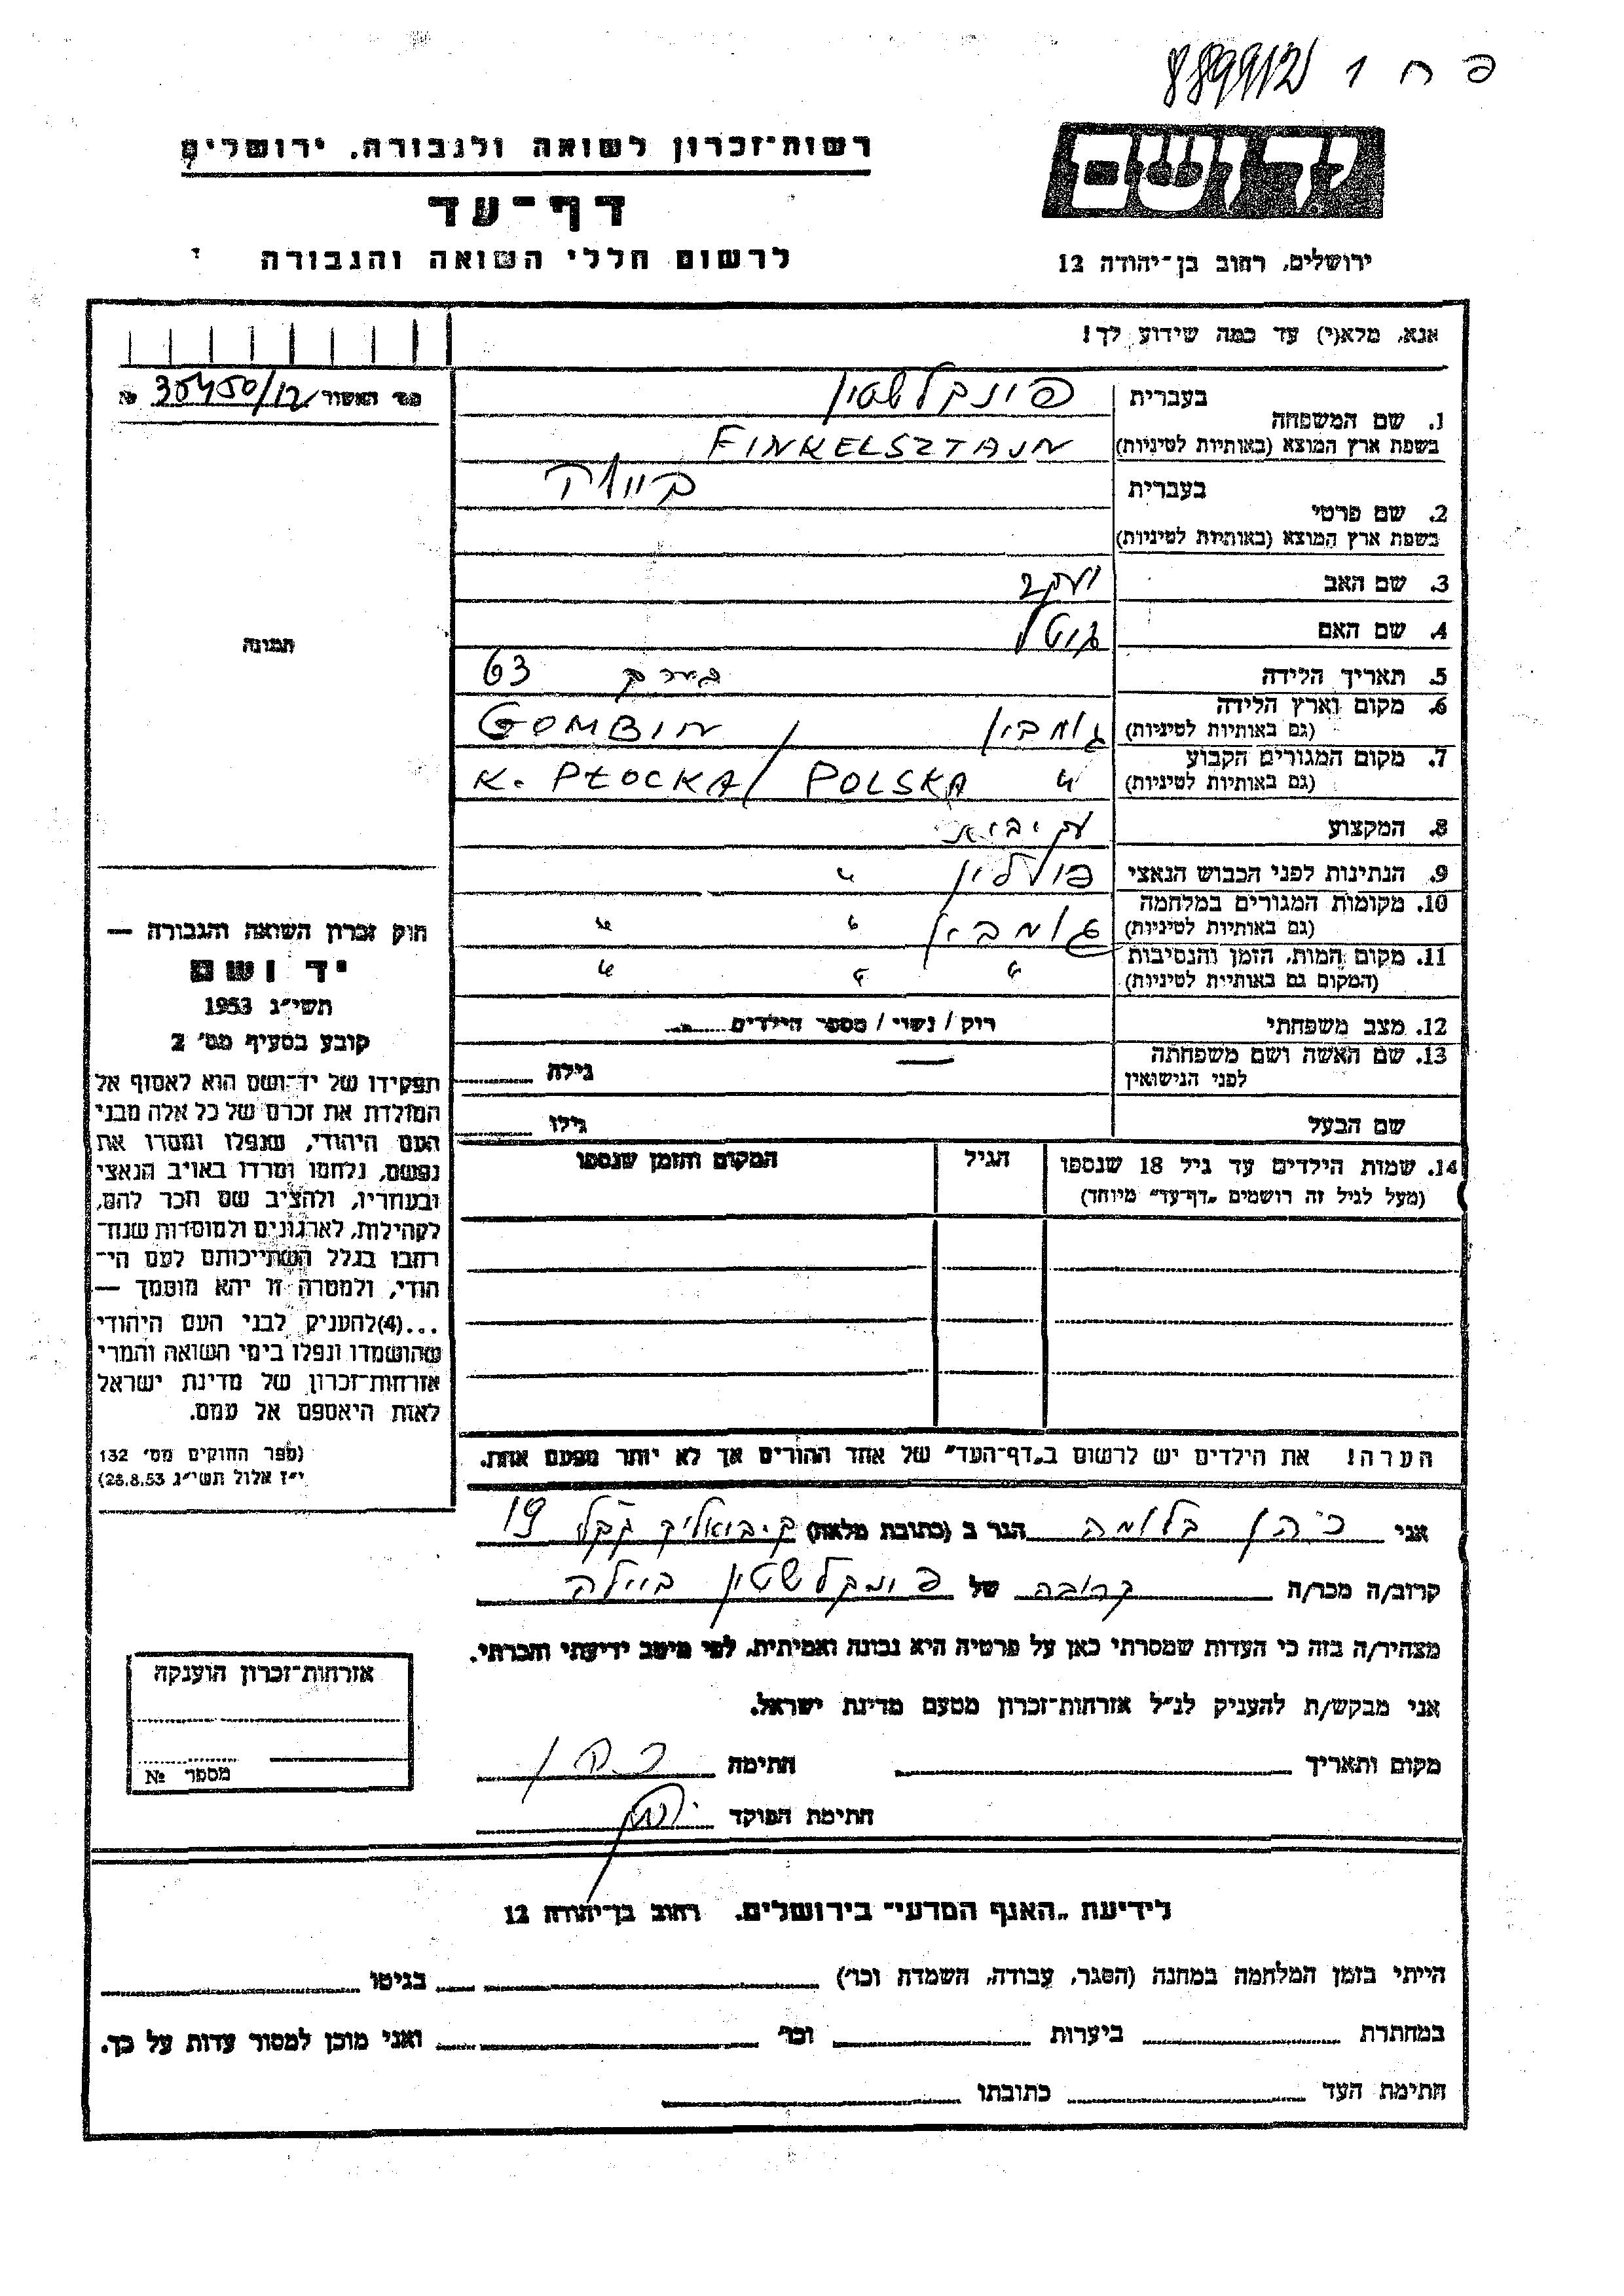 889912 1 ח פ
רשות־זכרון לשואה ולגבורה, ירושלים
דף־עד
לרשום חללי השואה והגבורה
יד ושם
ירושלים, רחוב בן־יהודה 12
אנא, מלא(י) עד כמה שידוע לך!
מס' האשור 35450/12 №
1. שם המשפחה בעברית פינקלשטין
בשפת ארץ המוצא (באותיות לטיניות) FINKELSZTAJN
2. שם פרטי בעברית ביילה
בשפת ארץ המוצא (באותיות לטיניות)
3. שם האב יעקב
4. שם האם גיטל
5. תאריך הלידה בערך 63
6. מקום וארץ הלידה גומבין GOMBIN
(גם באותיות לטיניות)
7. מקום המגורים הקבוע " K. PŁOCKA / POLSKA
(גם באותיות לטיניות)
8. המקצוע
9. הנתינות לפני הכבוש הנאצי פולין "
10. מקומות המגורים במלחמה גומבין " "
(גם באותיות לטיניות)
11. מקום המות, הזמן והנסיבות " " "
(המקום גם באותיות לטיניות)
12. מצב משפחתי רוק / נשוי / מספר הילדים
13. שם האשה ושם משפחתה — גילה
לפני הנישואין
שם הבעל גילו
14. שמות הילדים עד גיל 18 שנספו הגיל המקום והזמן שנספו
(מעל לגיל זה רושמים „דף־עד" מיוחד)
הערה! את הילדים יש לרשום ב„דף־העד" של אחד ההורים אך לא יותר מפעם אחת.
תמונה
חוק זכרון השואה והגבורה —
יד ושם
תשי"ג 1953
קובע בסעיף מס' 2
תפקידו של יד־ושם הוא לאסוף אל
המולדת את זכרם של כל אלה מבני
העם היהודי, שנפלו ומסרו את
נפשם, נלחמו ומרדו באויב הנאצי
ובעוזריו, ולהציב שם וזכר להם,
לקהילות, לארגונים ולמוסדות שנח־
רבו בגלל השתייכותם לעם הי־
הודי, ולמטרה זו יהא מוסמך —
...(4)להעניק לבני העם היהודי
שהושמדו ונפלו בימי השואה והמרי
אזרחות־זכרון של מדינת ישראל
לאות היאספם אל עמם.
(ספר החוקים מס' 132
י"ז אלול תשי"ג 28.8.53)
אני כהן בלומה הגר ב (כתובת מלאה) ק. ביאליק 19
קרוב/ה מכר/ה קרובה של פינקלשטין ביילה
מצהיר/ה בזה כי העדות שמסרתי כאן על פרטיה היא נכונה ואמיתית, לפי מיטב ידיעתי והכרתי.
אני מבקש/ת להעניק לנ"ל אזרחות־זכרון מטעם מדינת ישראל.
מקום ותאריך חתימה כהן
חתימת הפוקד
אזרחות־זכרון הוענקה
מספר №
לידיעת „האגף המדעי" בירושלים, רחוב בן־יהודה 12
הייתי בזמן המלחמה במחנה (הסגר, עבודה, השמדה וכו') בגיטו
במחתרת ביערות וכו' ואני מוכן למסור עדות על כך.
חתימת העד כתובתו